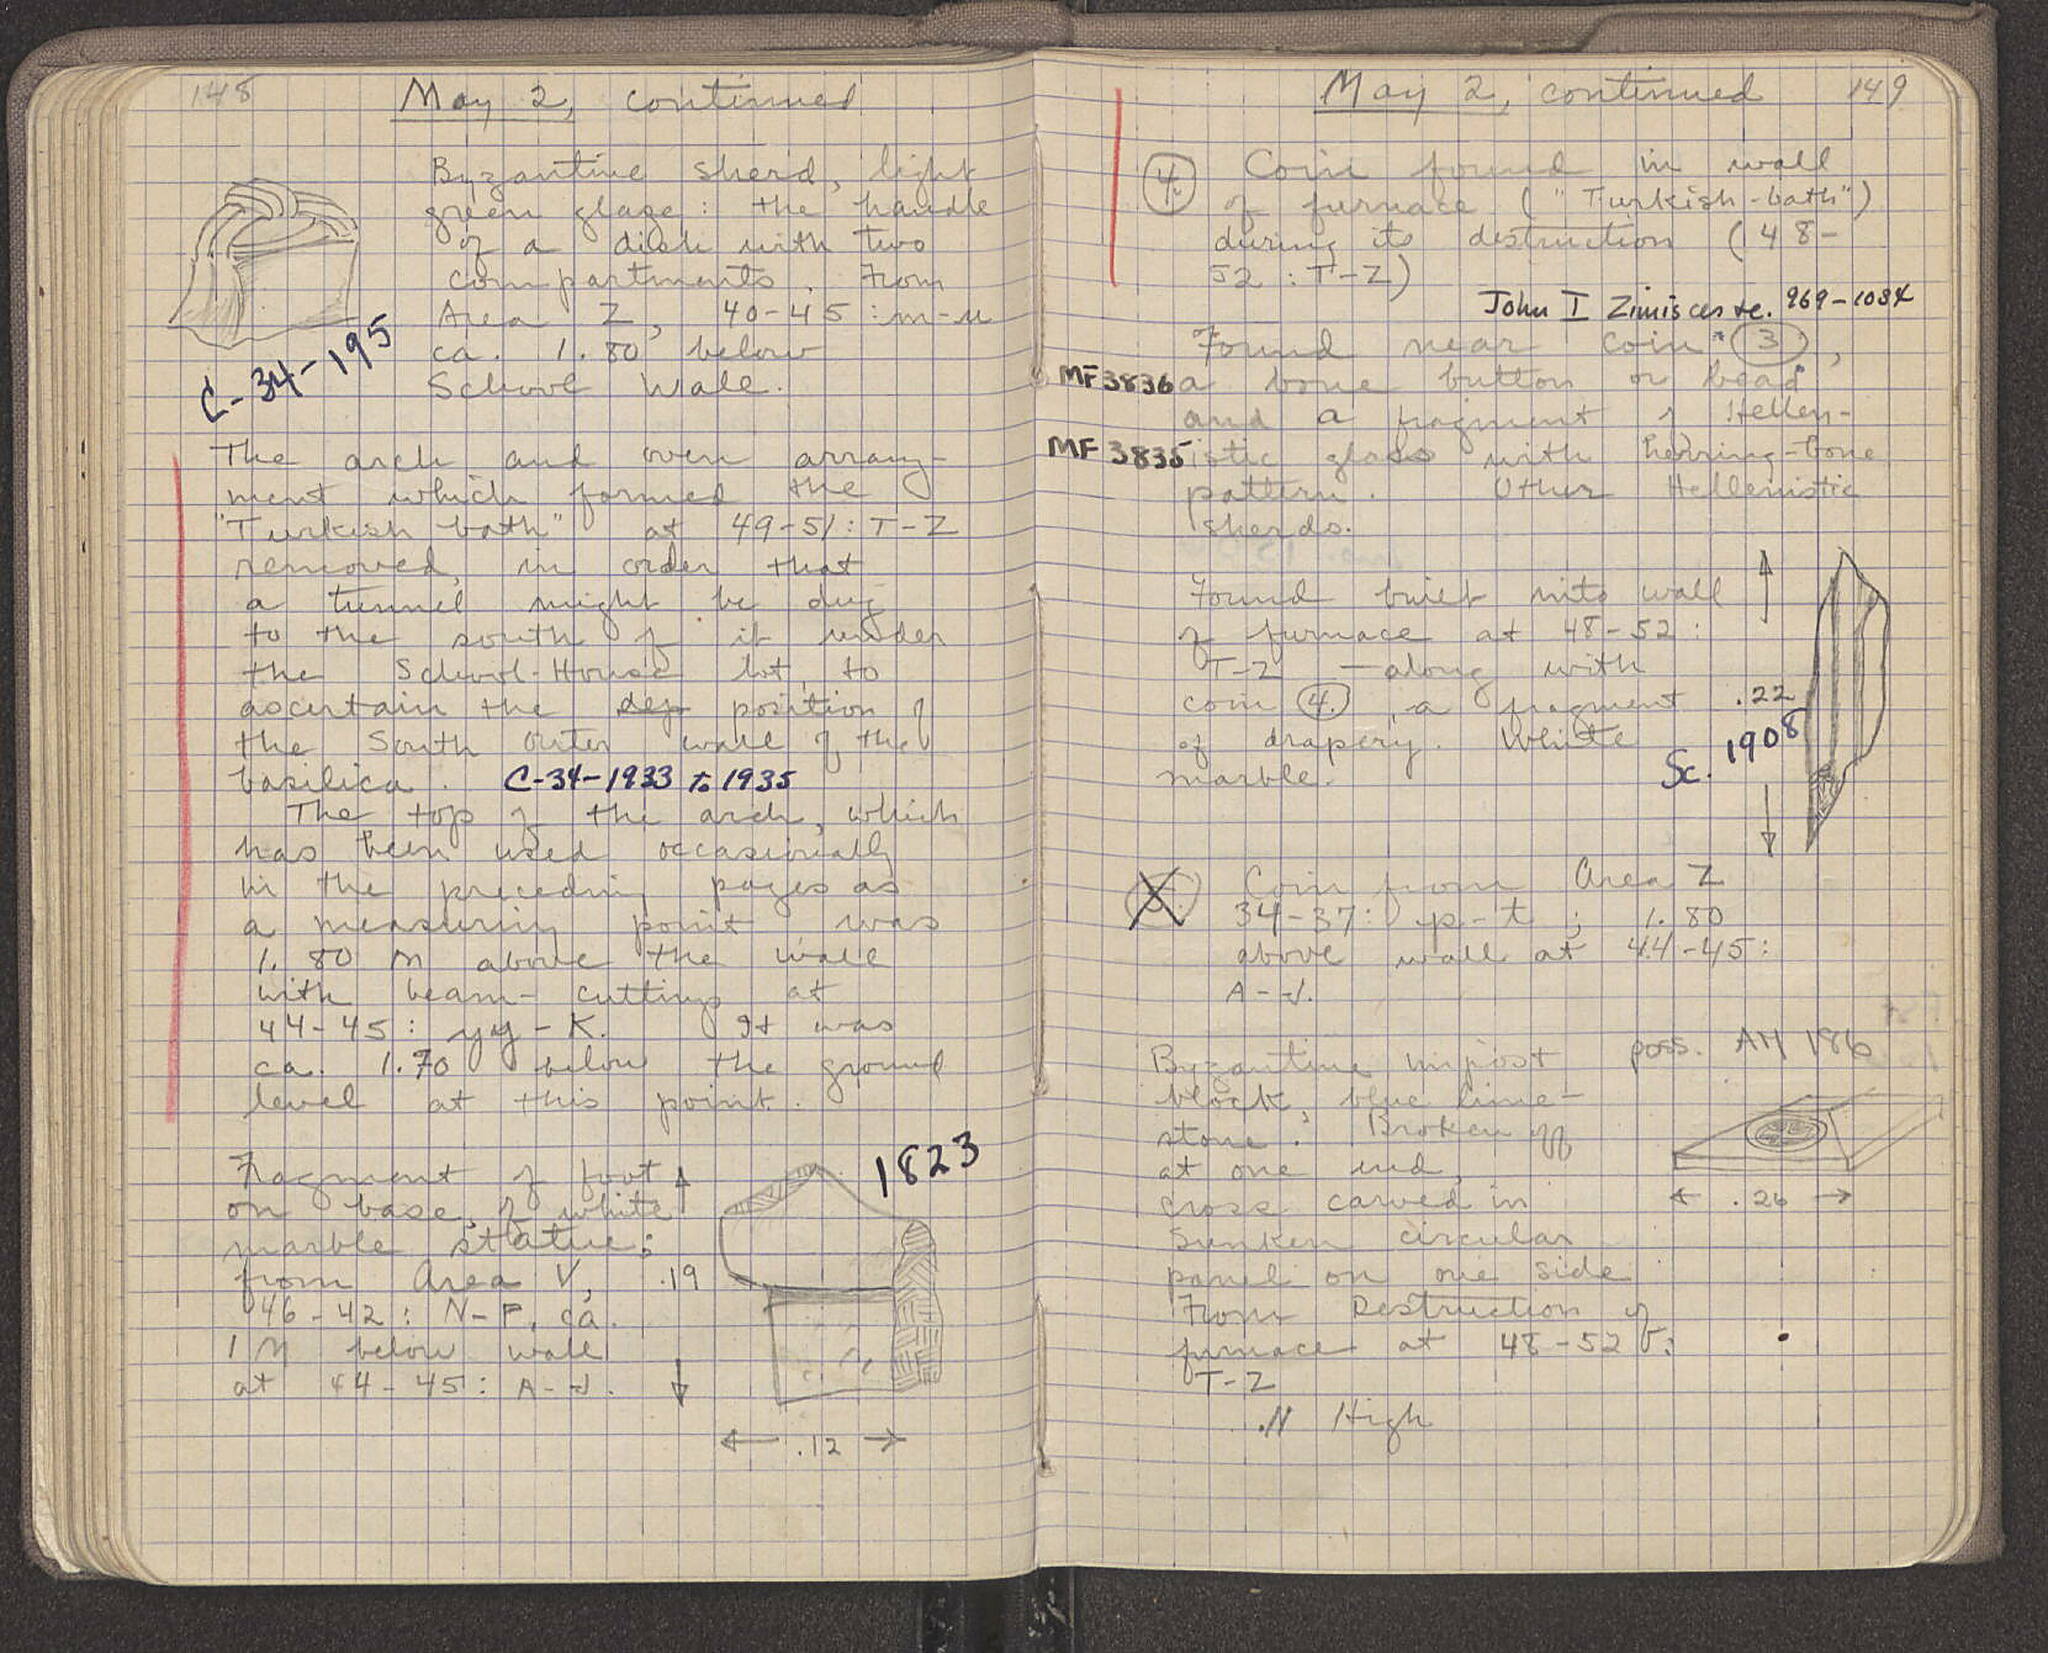 148
May 2, continued
Byzantine sherd, light
green glaze: the handle
of a dish with two
compartments. From
Area Z, 40-45: m-u
ca. 1.80 below
School Wall.
C-34-195
The arch and oven arrange-
ment which formed the
"Turkish bath" at 49-51: T-Z
removed, in order that
a tunnel might be dug
to the south of it under
the School-House lot, to
ascertain the dep position of
the South outer wall of the
basilica. C-34-1933 to 1935
The top of the arch, which
has been used occasionally
in the preceding pages as
a measuring point was
1.80 m above the wall
with beam-cuttings at
44-45: yy-K. It was
ca. 1.70 below the ground
level at this point.
1823
Fragment of foot
on base, of white
marble statue;
from Area V,
46-42: N-P, ca.
1 M below wall
at 44-45: A-J.
.19
.12
May 2, continued
149
4. Coin found in wall
of furnace ("Turkish-bath")
during its destruction (48-
52: T-Z)
John I Zimisces te. 969-1034
Found near coin 3,
MF 3836 a bone button or bead
and a fragment of Hellen-
MF 3835 istic glass with herring-bone
pattern. Other Hellenistic
sherds.
Found built into wall
of furnace at 48-52:
T-Z - along with
coin 4. a fragment
of drapery. White
marble.
.22
Sc. 1908
5. Coin from Area Z
34-37: p-t; 1.80
above wall at 44-45:
A-J.
poss. AM 186
Byzantine impost
block, blue lime-
stone. Broken off
at one end,
cross carved in
sunken circular
panel on one side
From Destruction of
furnace at 48-52:
T-Z
.11 High
.26